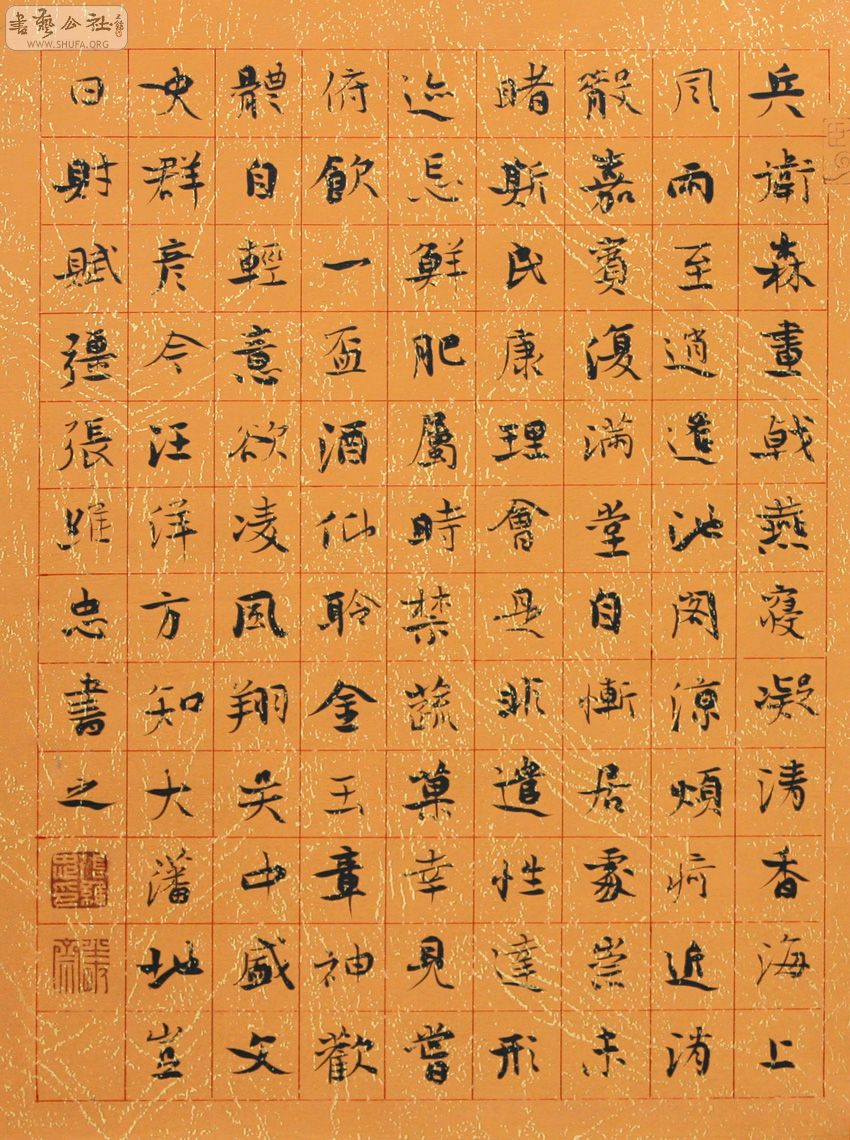 書藝公社
WWW.SHUFA.ORG
兵衛森畫戟燕寢凝清香海上
風雨至逍遙池閣涼煩疴近消
散嘉賓復滿堂自慚居處崇未
睹斯民康理會是非遣性達形
迹忘鮮肥屬時禁蔬菓幸見嘗
俯飲一盃酒仙聆金玉章神歡
體自輕意欲凌風翔吳中盛文
史群彥今汪洋方知大藩地豈
曰財賦彊張維忠書之
張維忠印